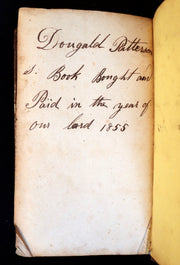 Dougald Patterson
s. Book Bought and
Paid in the year of
our lard 1855